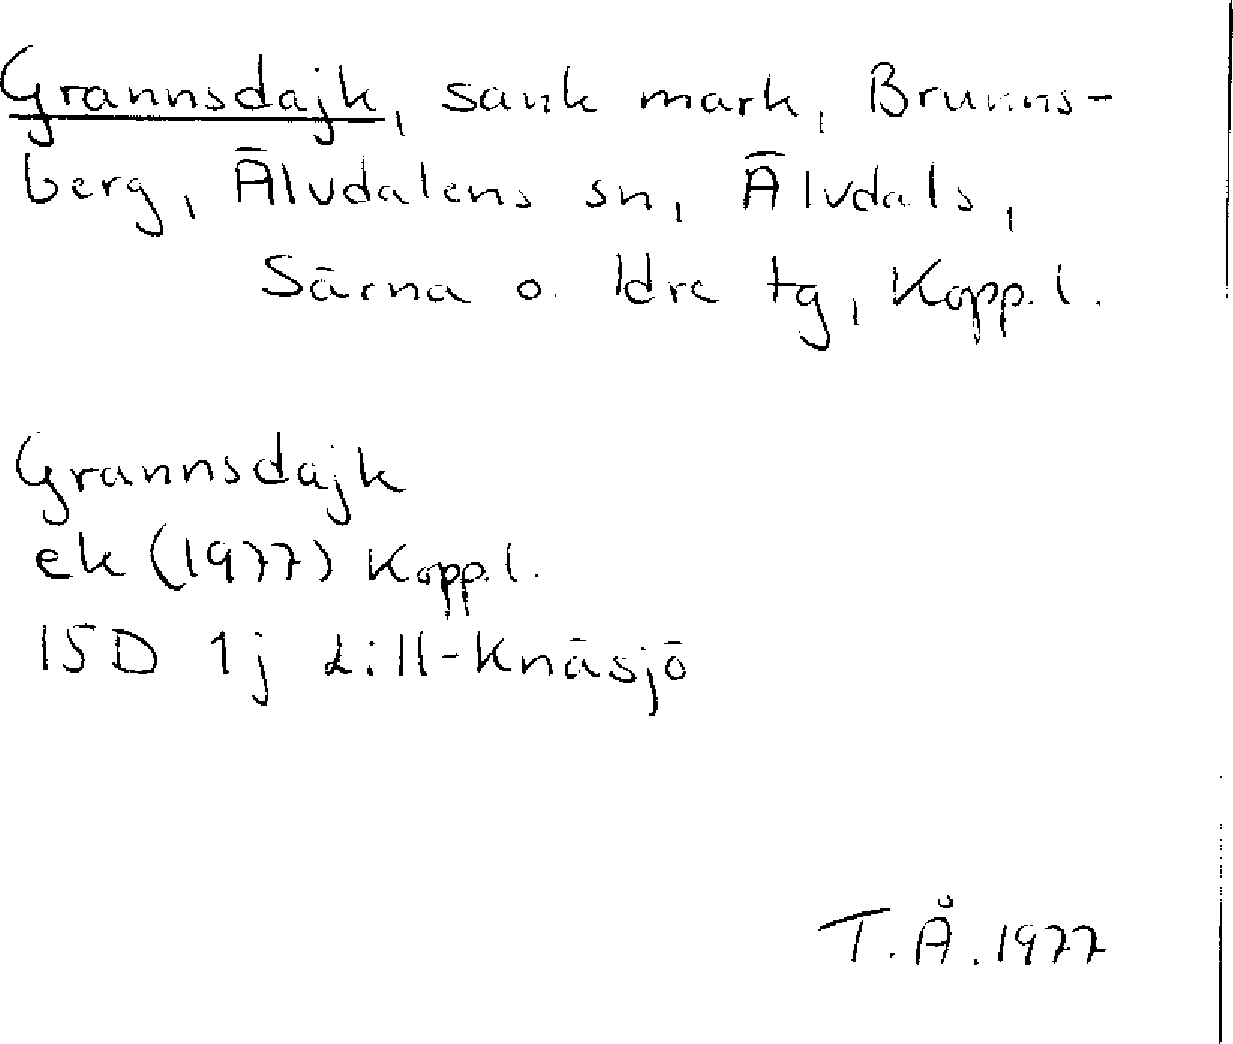 Grannsdajk, sank mark, Brunns-
berg, Älvdalens sn, Älvdals,
Särna o. Idre tg, Kopp. l.
Grannsdajk
ek (1977) Kopp. l.
15D 1j Lill-Knäsjö
T. Å. 1977